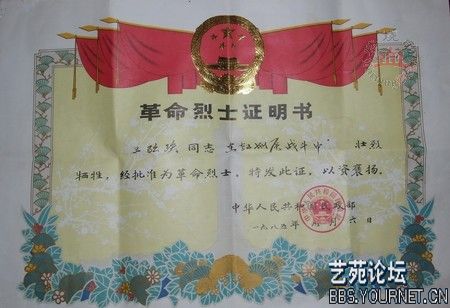 革命烈士证明书
同志在 战斗中 壮烈
牺牲，经批准为革命烈士，特发此证，以资褒扬。
中华人民共和国民政部
一九八五年 月 六日
艺苑论坛
BBS.YOURNET.CN